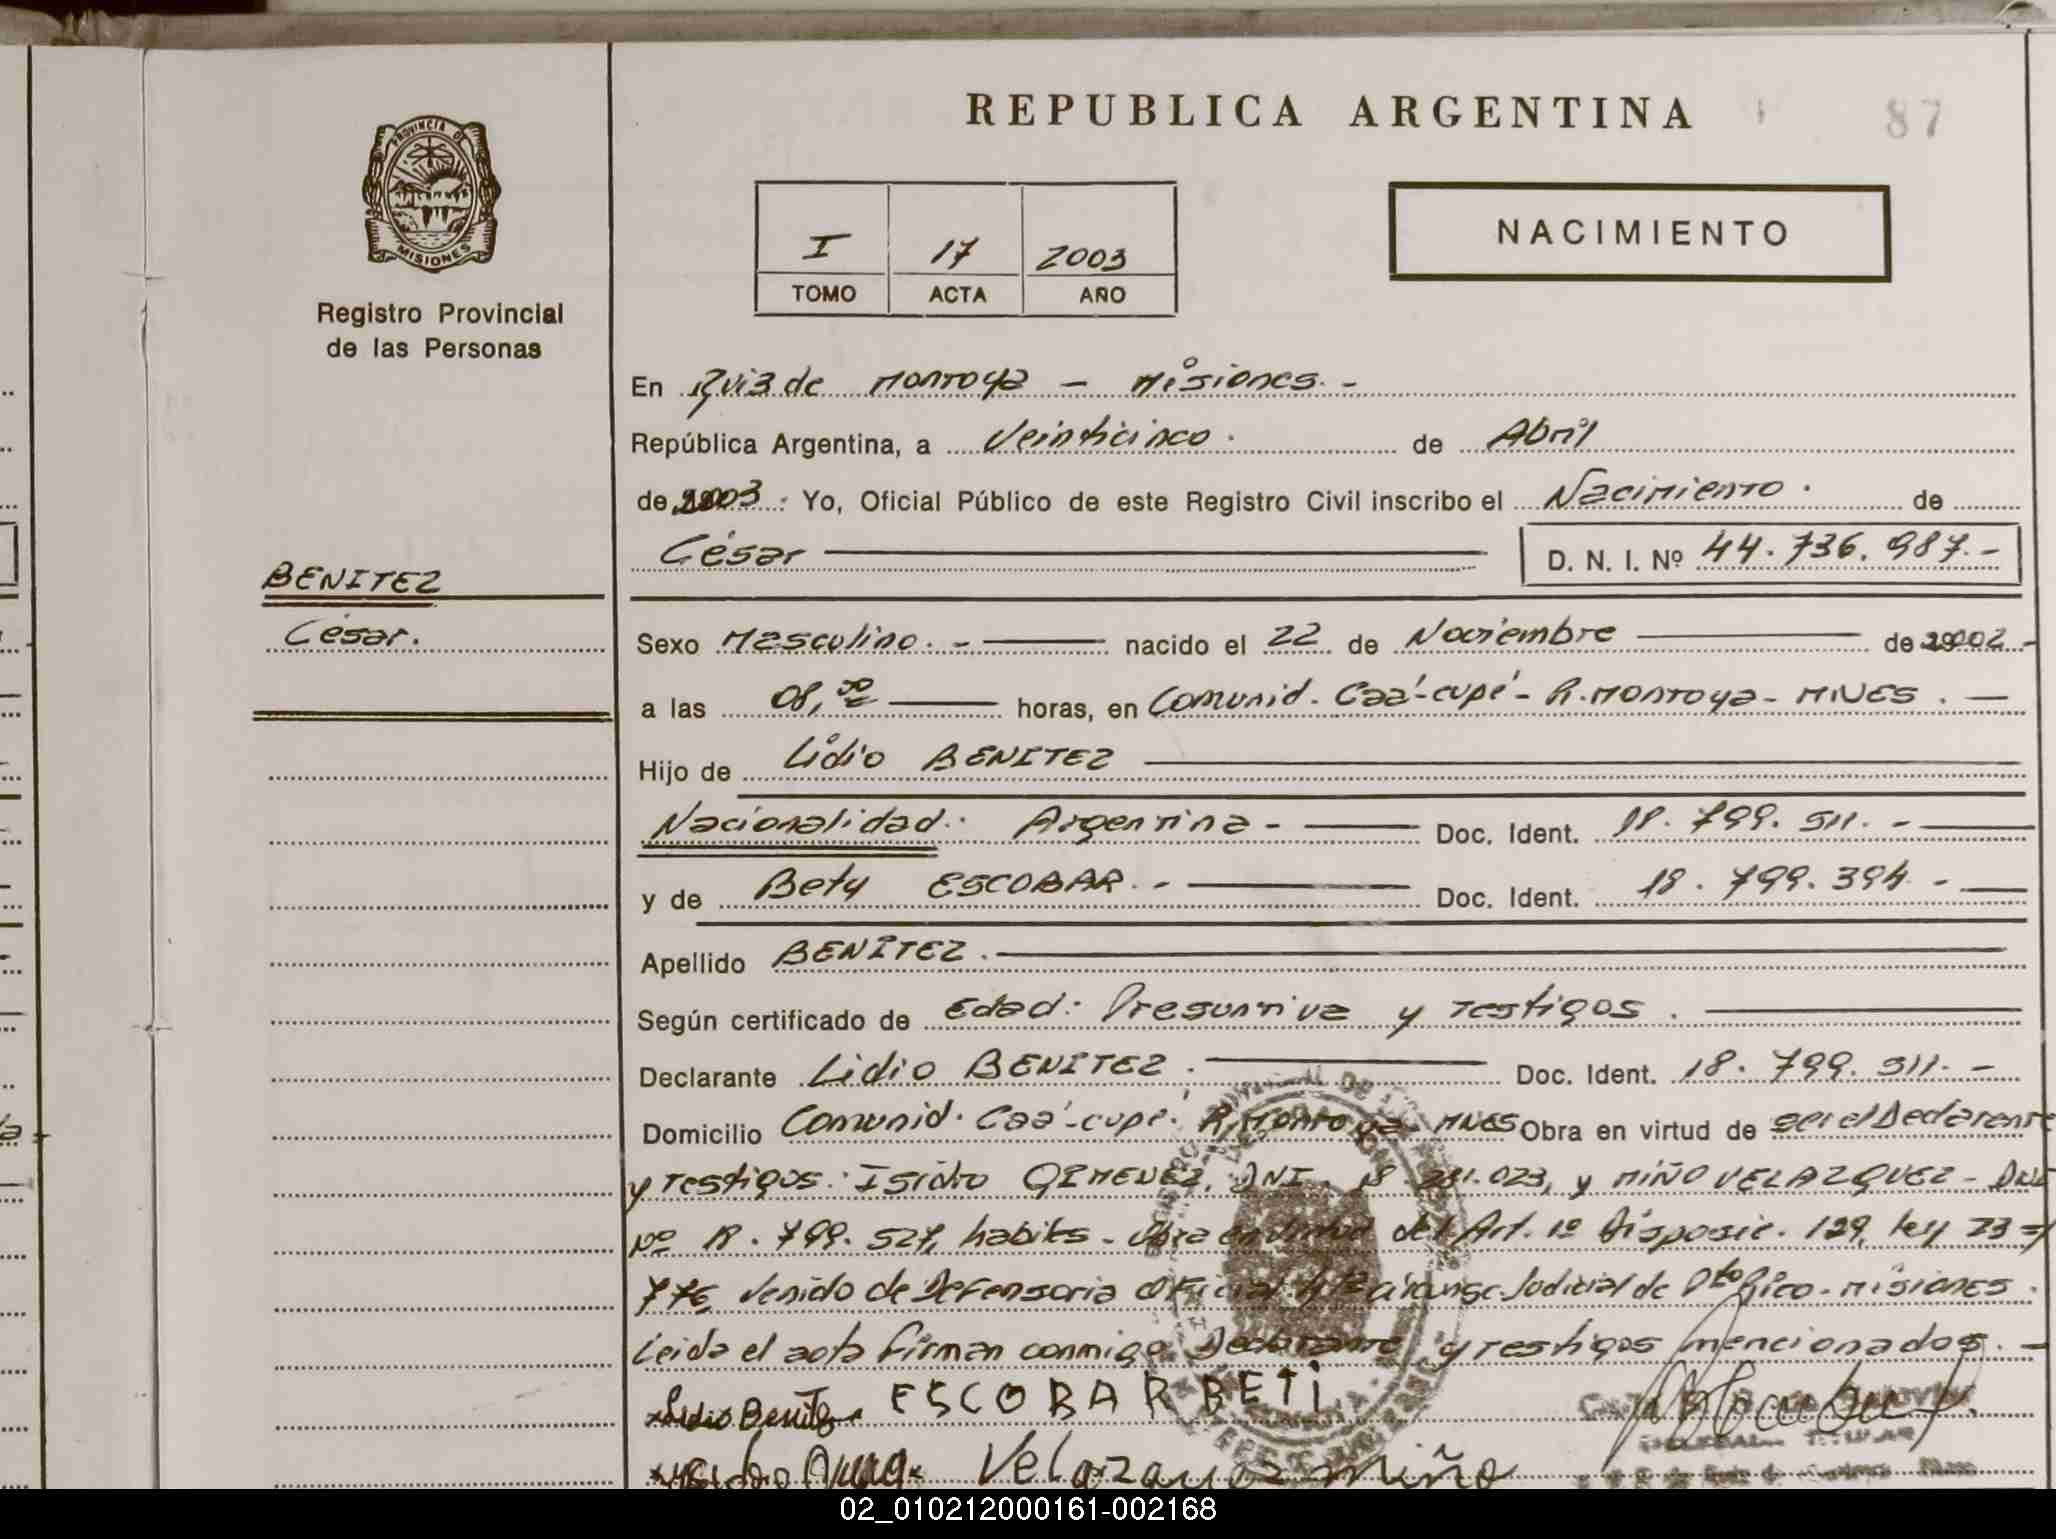 REPUBLICA ARGENTINA
87
PROVINCIA DE MISIONES
Registro Provincial
de las Personas
I 17 2003
TOMO ACTA AÑO
NACIMIENTO
En Ruiz de Montoya - Misiones. -
República Argentina, a Veinticinco. de Abril
de 2003. Yo, Oficial Público de este Registro Civil inscribo el Nacimiento. de
César D. N. I. Nº 44.736.987.-
BENITEZ
César.
Sexo Masculino. - nacido el 22 de Noviembre de 2002 -
a las 08,00 horas, en Comunid. Caá-cupé - R. Montoya - MNES. -
Hijo de Lidio BENITEZ
Nacionalidad: Argentina - Doc. Ident. 18.799.511. -
y de Bety ESCOBAR. - Doc. Ident. 18.799.394 -
Apellido BENITEZ.
Según certificado de Edad: Presuntiva y Testigos.
Declarante Lidio BENITEZ. Doc. Ident. 18.799.511. -
Domicilio Comunid. Caá-cupé. R. Montoya MNES Obra en virtud de ser el Declarante
y Testigos: Isidro GIMENEZ, DNI. y MIÑO VELAZQUEZ - DNI
Nº 18.799.527, habits. Obra en virtud del Art. 1º Disposic. 129, ley 23
776, venido de Defensoria Oficial Judicial de Pto Rico - Misiones.
Leida el acta firman conmigo Declarante y testigos mencionados. -
Lidio Benitez ESCOBAR BETI
Velazquez miño
02_010212000161-002168